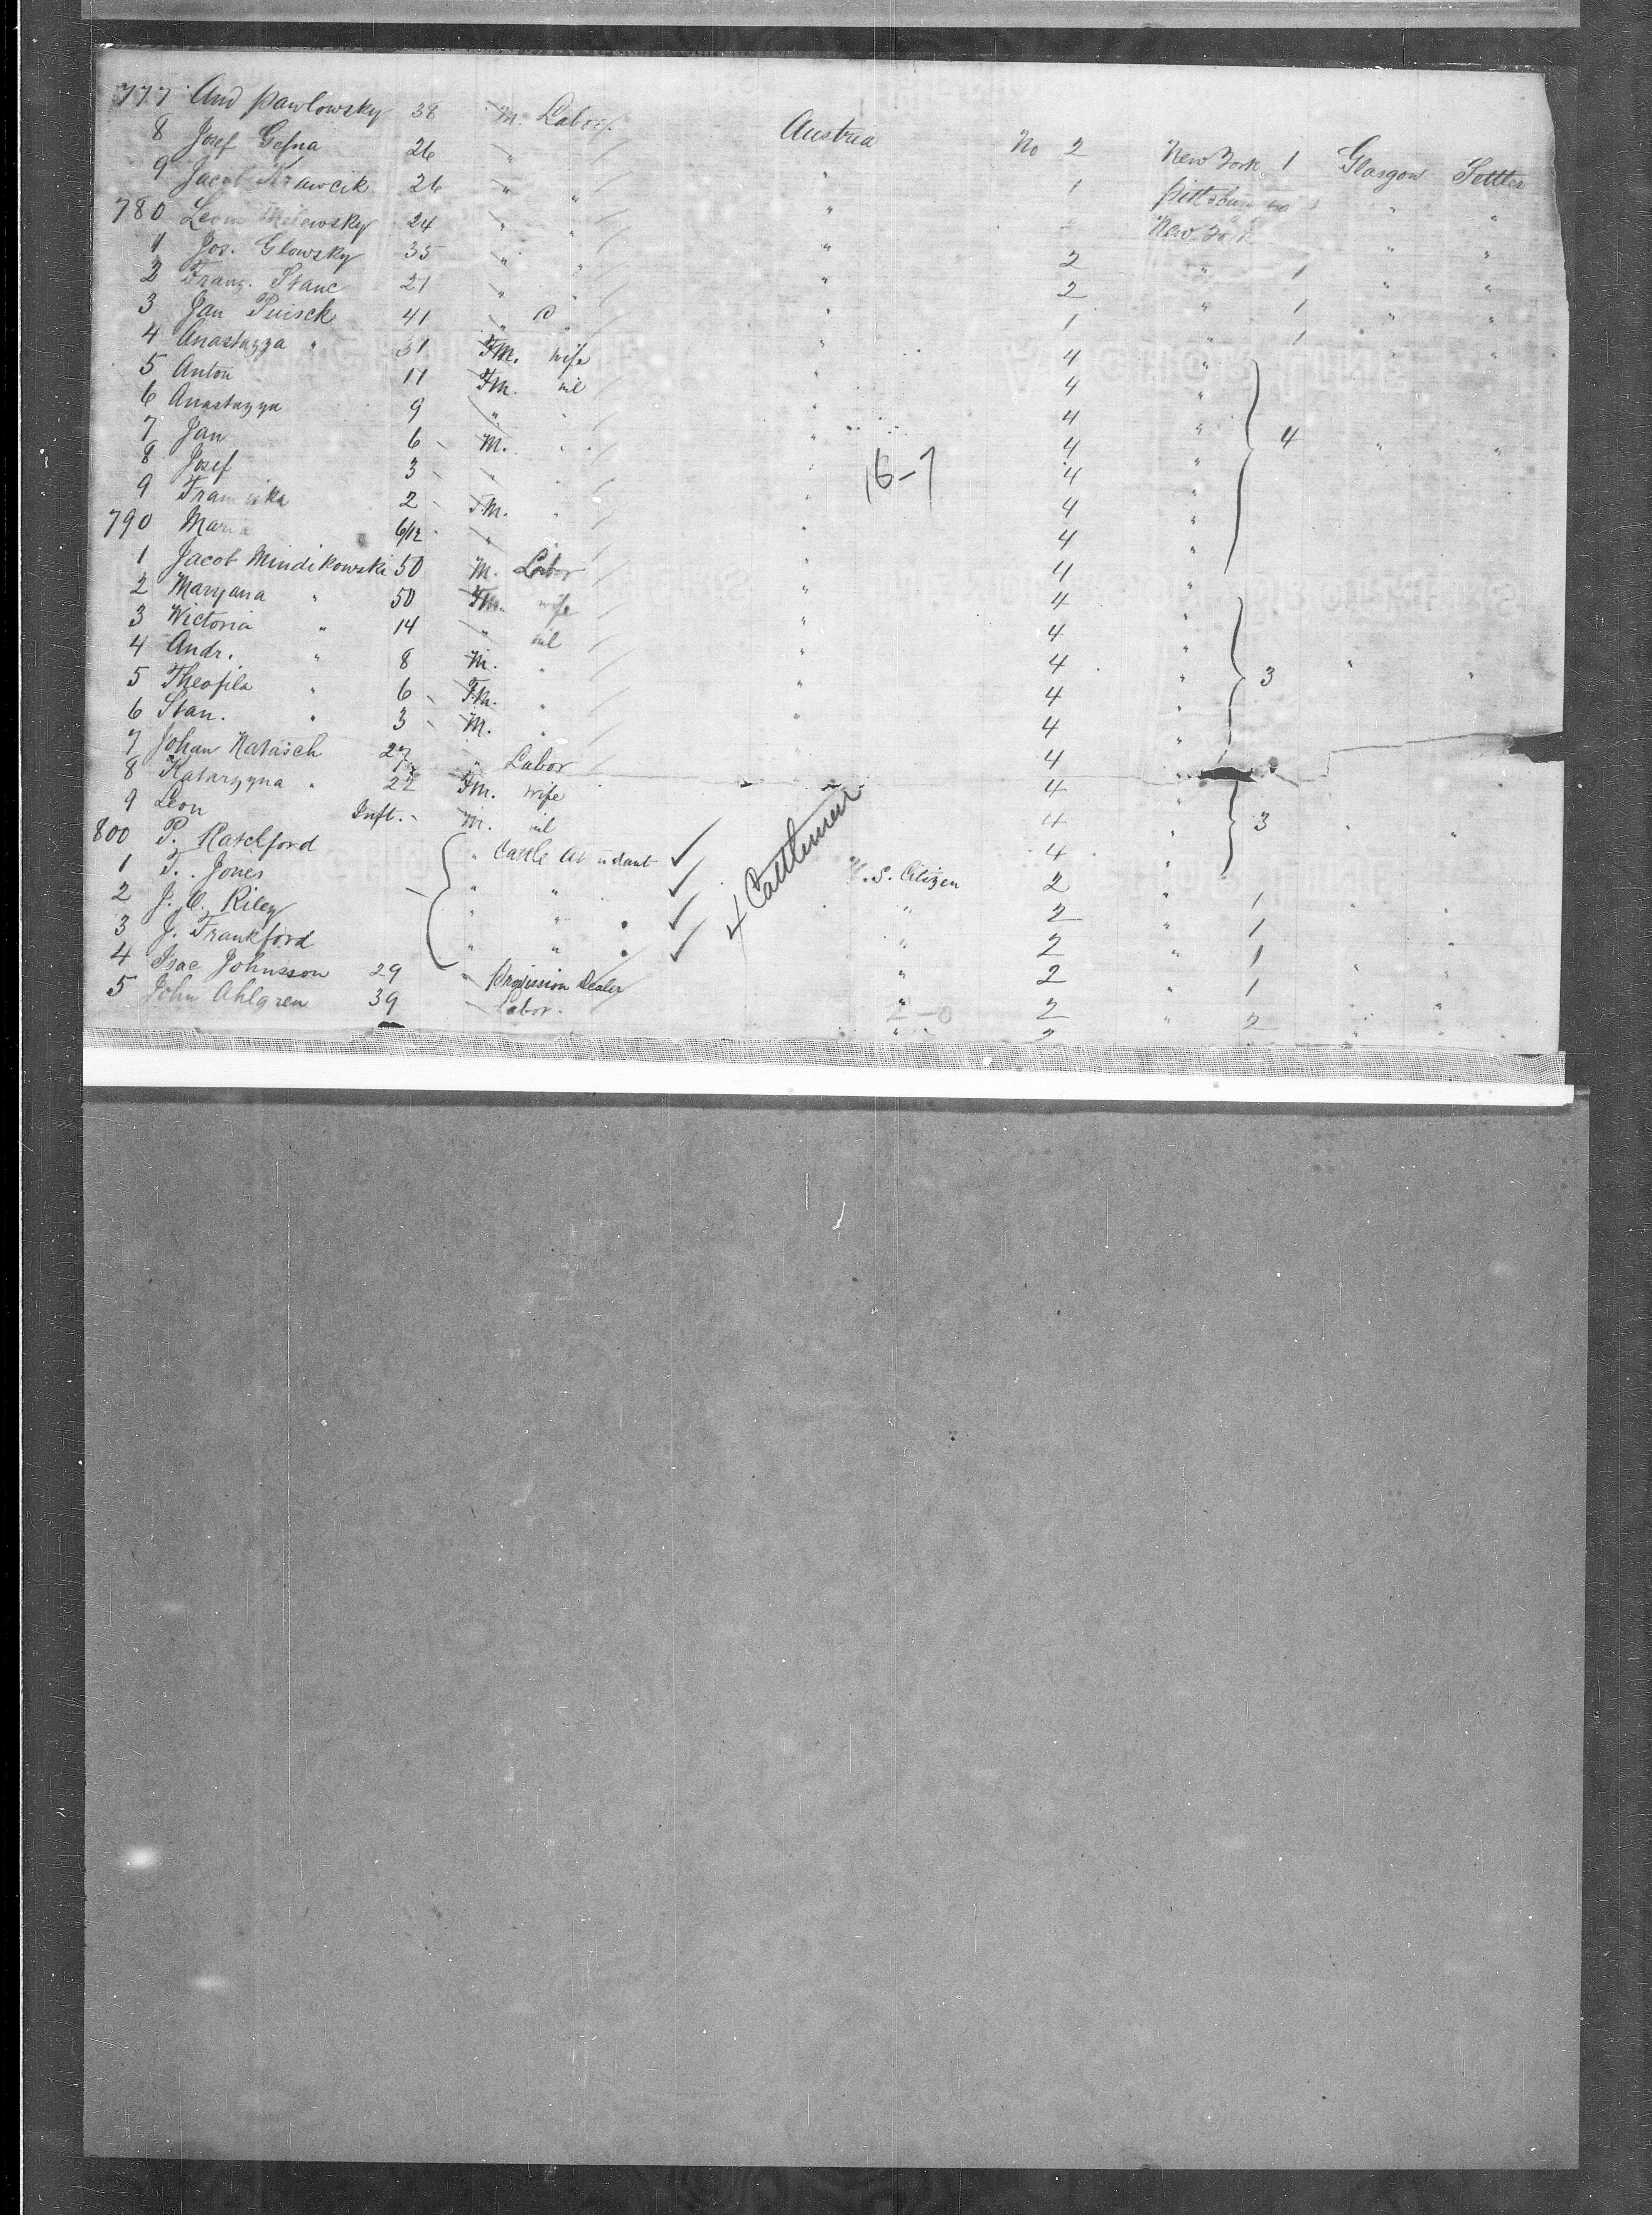 777 And Pawlowsky 38 M. Labor. Austria No 2 New York 1 Glasgow Settler
8 Josef Gesna 26 " " " 1 Pittsburg " "
9 Jacob Krawcik 26 " " " New York " "
780 Leon Milewsky 24 " " " 2 " 1 " "
1 Jos. Glowsky 35 " " " 2 " 1 " "
2 Franz. Stanc 21 " " " 1 " 1 " "
3 Jan 41 " " " 4 "
4 Anastazya " 31 Fm. wife " 4 "
5 Anton 11 Fm. nil " 4 "
6 Anastazya 9 " " " 4 " 4 " "
7 Jan 6 M. " " 4 "
8 Josef 3 " " " 4 "
9 Franciska 2 Fm. " " 4 "
790 Maria 6/12 " " " 4 "
1 Jacob Mindikowski 50 M. Labor " 4 "
2 Maryana " 50 Fm. wife " 4 "
3 Wictoria " 14 " nil " 4 "
4 Andr. " 8 M. " " 4 " 3 " "
5 Theofila " 6 Fm. " " 4 "
6 Stan. " 3 M. " 4 "
7 Johan Natasch 27 " Labor 4 "
8 Katarzyna " 22 Fm. wife 4 " 3 " "
9 Leon Inft. M. nil 4 "
800 P. Ratchford " Cattle Attendant U.S. Citizen 2 " 1 "
1 T. Jones " " " 2 " 1 "
2 J. C. Riley " " " 2 " 1 " "
3 J. Frankford " " " 2 " 1
4 Isac Johnsson 29 " Provission Dealer " 2 " 2 " "
5 John Ahlgren 39 " Labor. " 2
16-7
4 Cattlemen
2-0